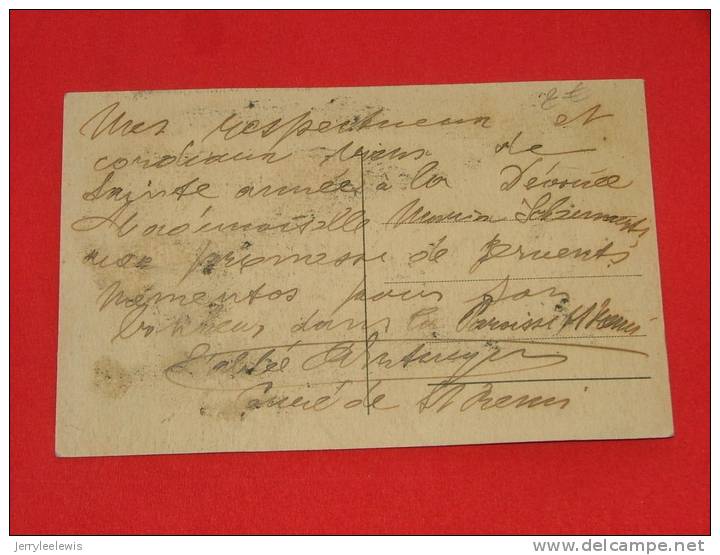 Mes respectueux et
cordiaux vœux de
Sainte année à la Dévouée
Mademoiselle Maria
promesse de fervents
mémentos pour son
bonheur dans la Paroisse St Remi
L'abbé
Curé de St Remi
jerryleelewis
www.delcampe.net